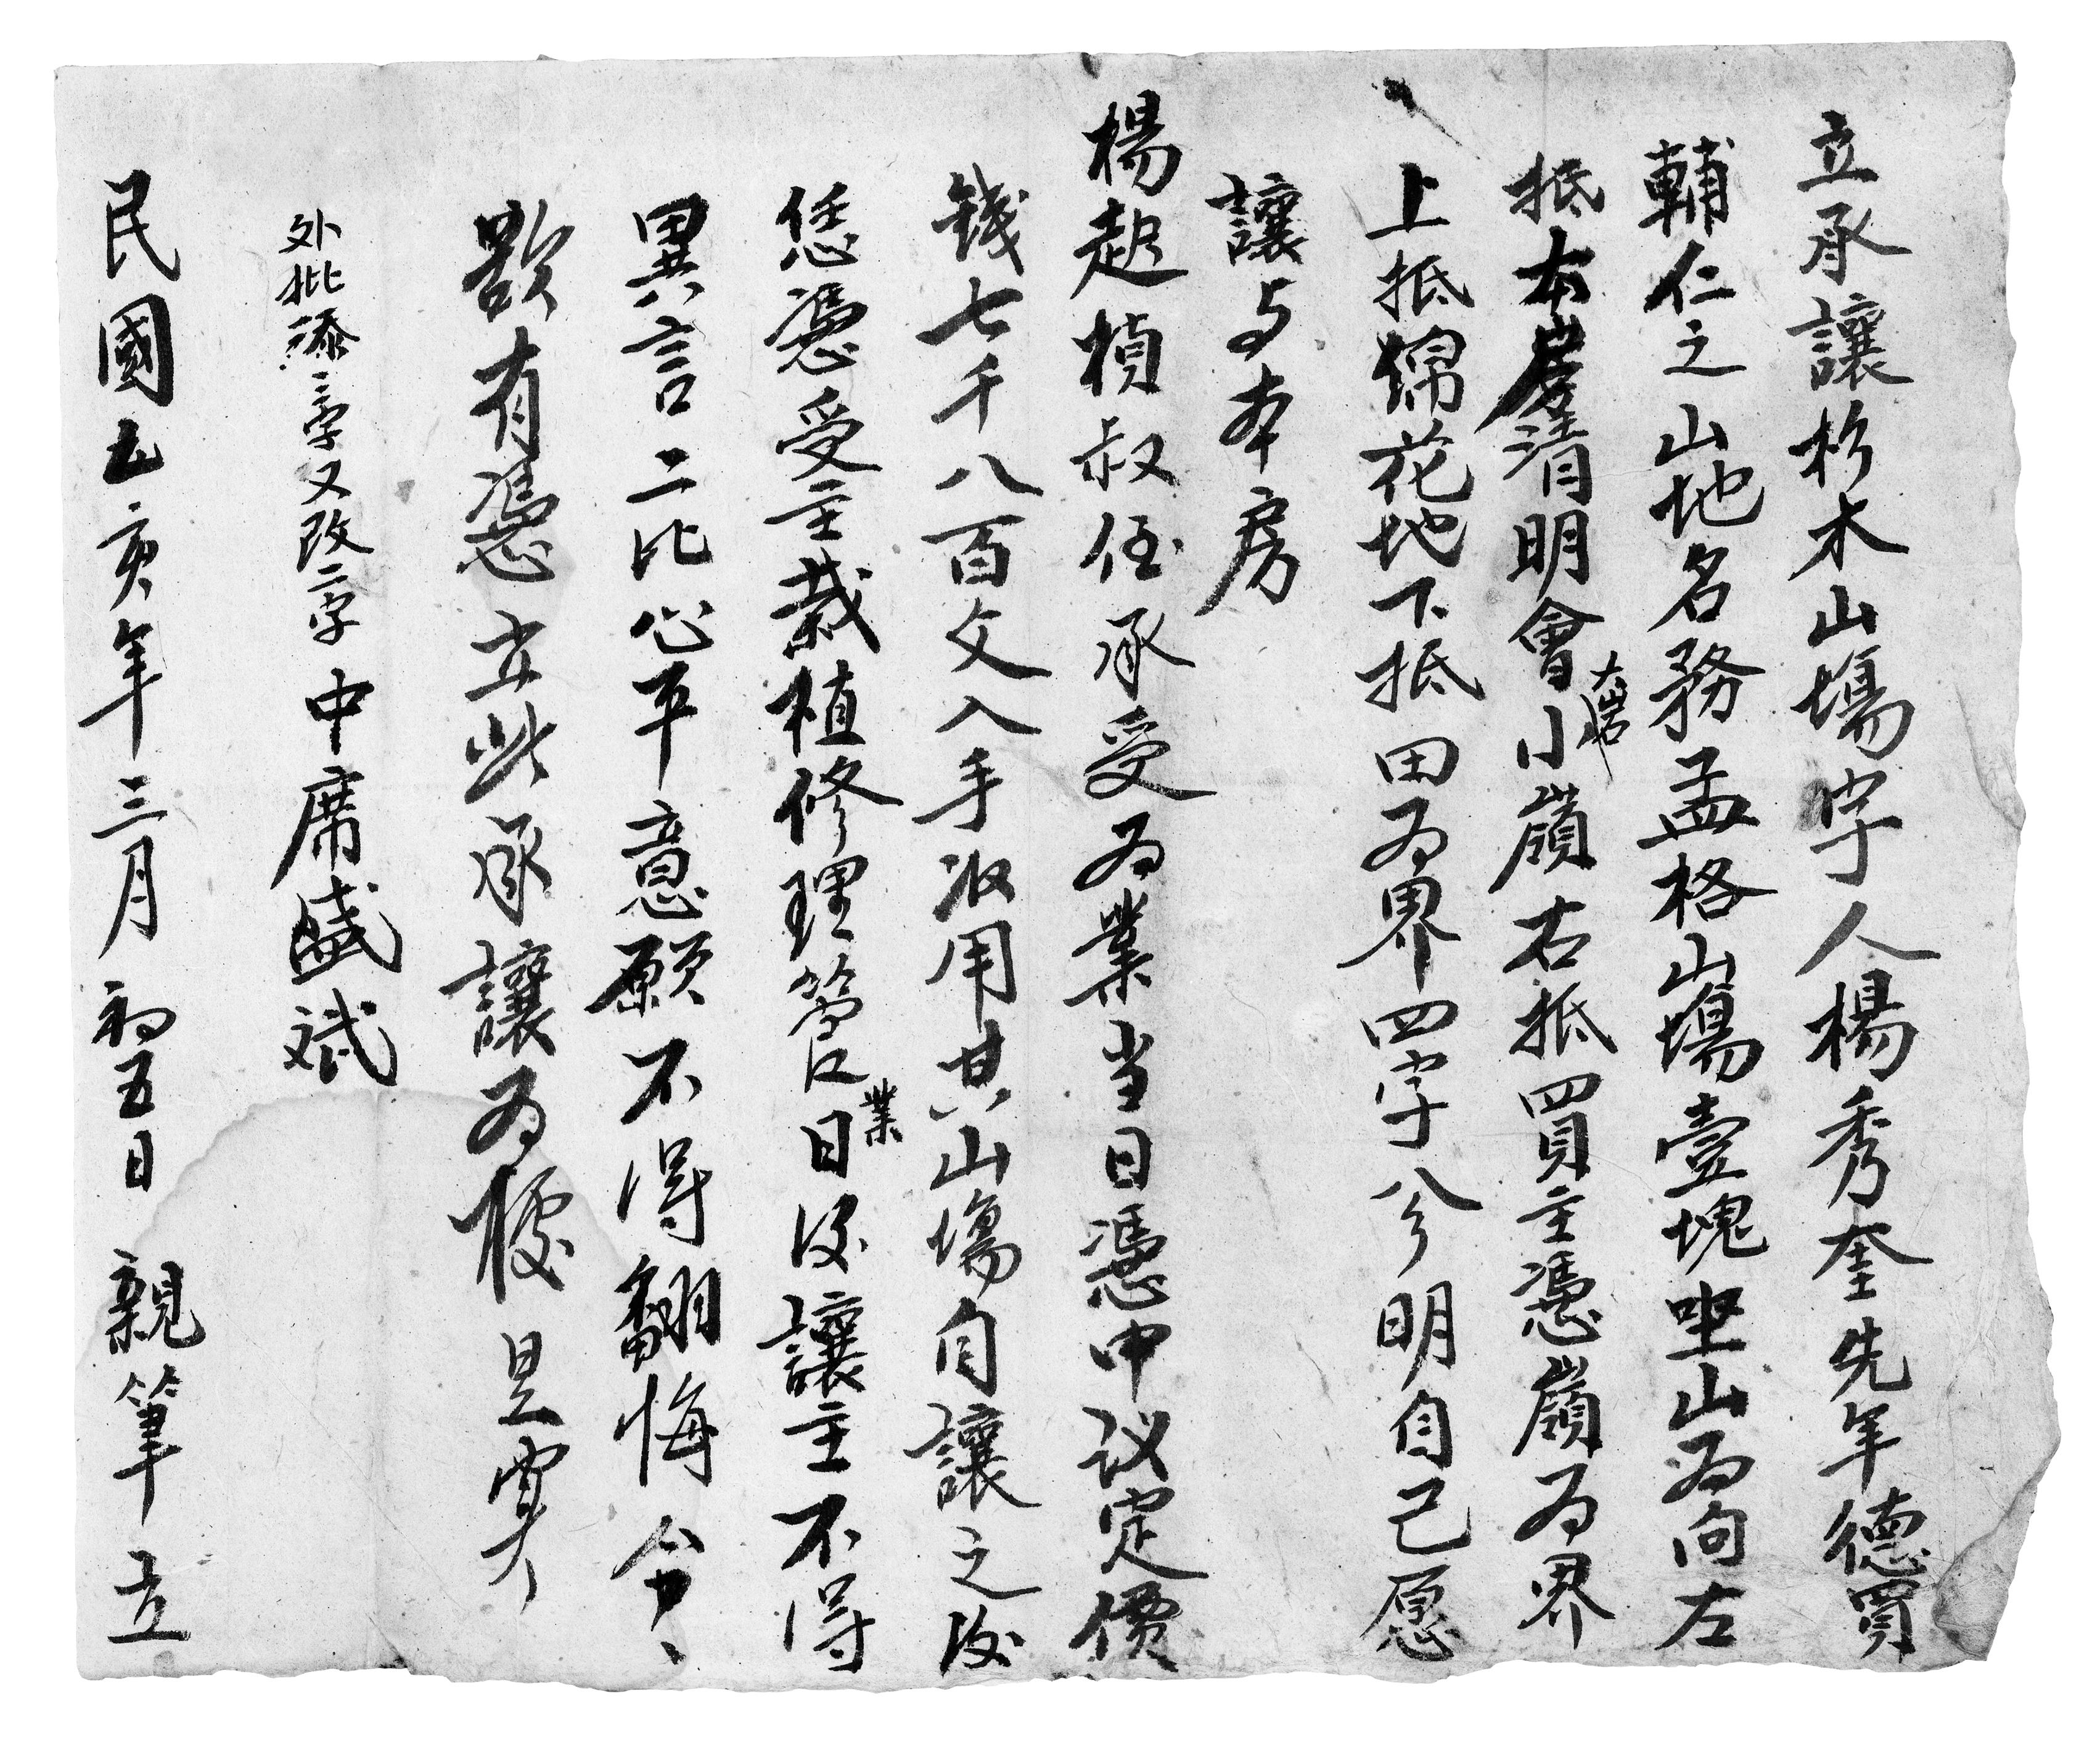 立承讓杉木山塲字人楊秀奎先年德買
輔仁之山地名務孟格山塲壹塊坐山為向左
抵本房清明會小嶺右抵買主憑嶺为界
上抵綿花地下抵田为界四字分明自己愿
讓与本房
楊起楨叔侄承受为業当日憑中议定價
錢七千八百文入手收用其山塲自讓之後
恁憑受主栽植修理管業日後讓主不得
異言二比心平意願不得翻悔今〻
欲有憑立此承讓为據是實
外批添三字又改二字 中 席盛斌
民國乙亥年三月初五日 親筆立